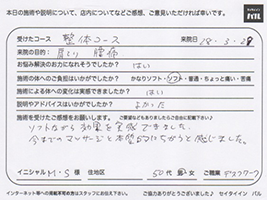 本日の施術や説明について、店内についてなどご感想、ご意見いただければ幸いです。
受けたコース 整体コース 来院日 18.3.2
来院の目的: 肩こり 腰痛
お悩み解決のお力になれそうでしたか? はい
施術の体へのご負担はいかがでしたか? かなりソフト・ソフト・普通・ちょっと痛い・苦痛
施術による体への変化は実感できましたか? はい
説明やアドバイスはいかがでしたか? よかった
施術を受けたご感想をお願いします。
ソフトながら効果を実感できました。
今までのマッサージと本質的にちがうと感じました。
イニシャル M・S 様 住地区 50代 男 女 ご職業 デスクワーク
インターネット等への掲載不可の方はスタッフにお伝え下さい。 ご協力ありがとうございました♪ セイタイイン パル